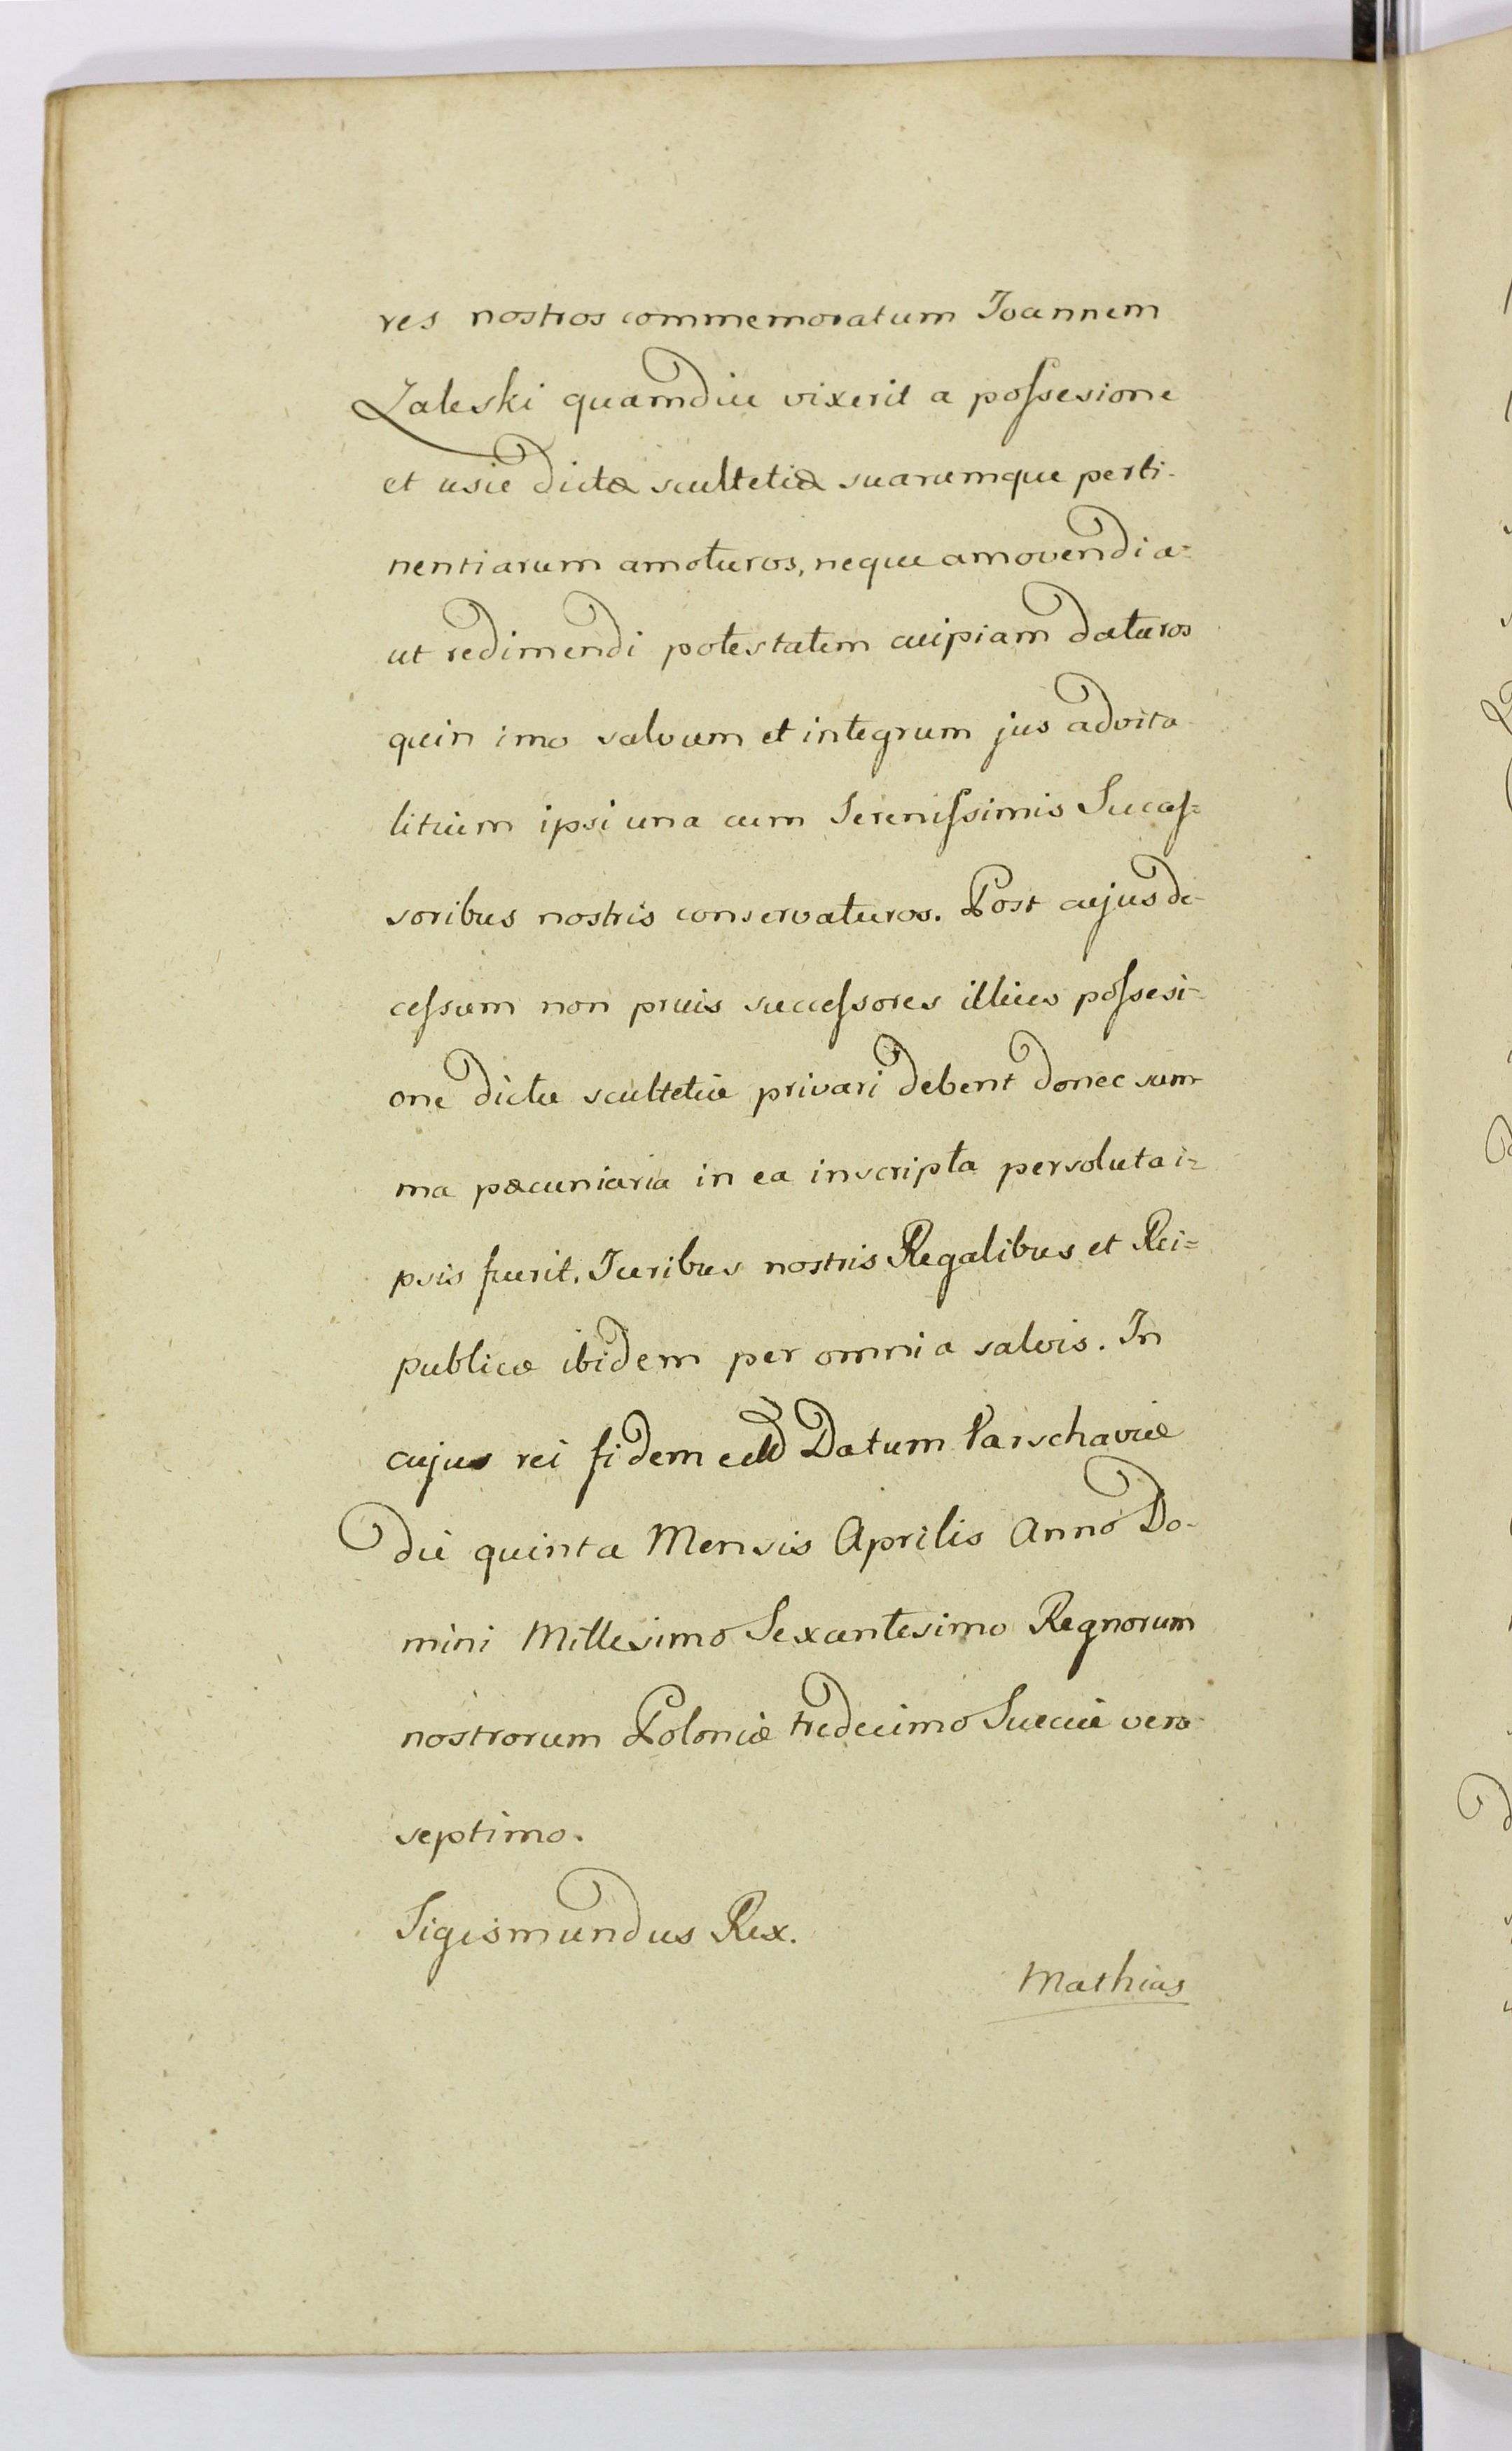 res nostros commemoratum Joannem
Zaleski quamdiu vixerit a possesione
et usu dictæ scultetiæ suarumque perti-
nentiarum amoturos, neque amovendi a=
ut redimendi potestatem cuipiam daturos
quin imo salvum et integrum jus advita
litium ipsi una cum Serenissimis Succes=
soribus nostris conservaturos. Post cujus de-
cessum non prius successores illius possesi-
one dictæ scultetiæ privari debent donec sum
ma pæcuniaria in ea inscripta persoluta i=
psis fuerit. Juribus nostris Regalibus et Rei=
publicæ ibidem per omnia salvis. In
cujus rei fidem Datum Varschaviæ
die quinta Mensis Aprilis Anno Do-
mini Millesimo Sexcentesimo Regnorum
nostrorum Poloniæ tredecimo Sueciæ vero
septimo.
Sigismundus Rex.
Mathias